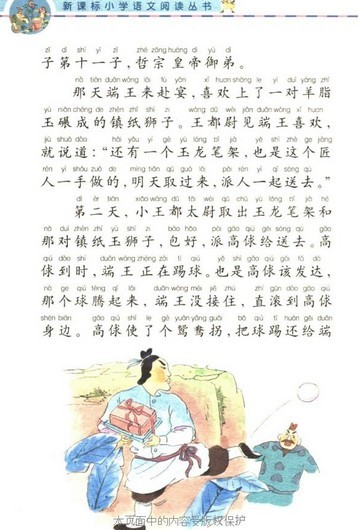 新课标小学语文阅读丛书
zǐ dì shí yī zǐ zhé zōng huáng dì yù dì
子第十一子，哲宗皇帝御弟。
nà tiān duān wáng lái fù yàn xǐ huan shàng le yí duì yáng zhī
那天端王来赴宴，喜欢上了一对羊脂
yù niǎn chéng de zhèn zhǐ shī zi wáng dū wèi jiàn duān wáng xǐ huan
玉碾成的镇纸狮子。王都尉见端王喜欢，
jiù shuō dào hái yǒu yí gè yù lóng bǐ jià yě shì zhè ge jiàng
就说道：“还有一个玉龙笔架，也是这个匠
rén yì shǒu zuò de míng tiān qǔ guò lái pài rén yì qǐ sòng qù
人一手做的，明天取过来，派人一起送去。”
dì èr tiān xiǎo wáng dū tài wèi qǔ chū yù lóng bǐ jià hé
第二天，小王都太尉取出玉龙笔架和
nà duì zhèn zhǐ yù shī zi bāo hǎo pài gāo qiú gěi sòng qù gāo
那对镇纸玉狮子，包好，派高俅给送去。高
qiú dào shí duān wáng zhèng zài tī qiú yě shì gāo qiú gāi fā dá
俅到时，端王正在踢球。也是高俅该发达，
nà ge qiú téng qǐ lái duān wáng méi jiē zhù zhí gǔn dào gāo qiú
那个球腾起来，端王没接住，直滚到高俅
shēn biān gāo qiú shǐ le gè yuān yāng guǎi bǎ qiú tī huán gěi duān
身边。高俅使了个鸳鸯拐，把球踢还给端
本页面中的内容受版权保护